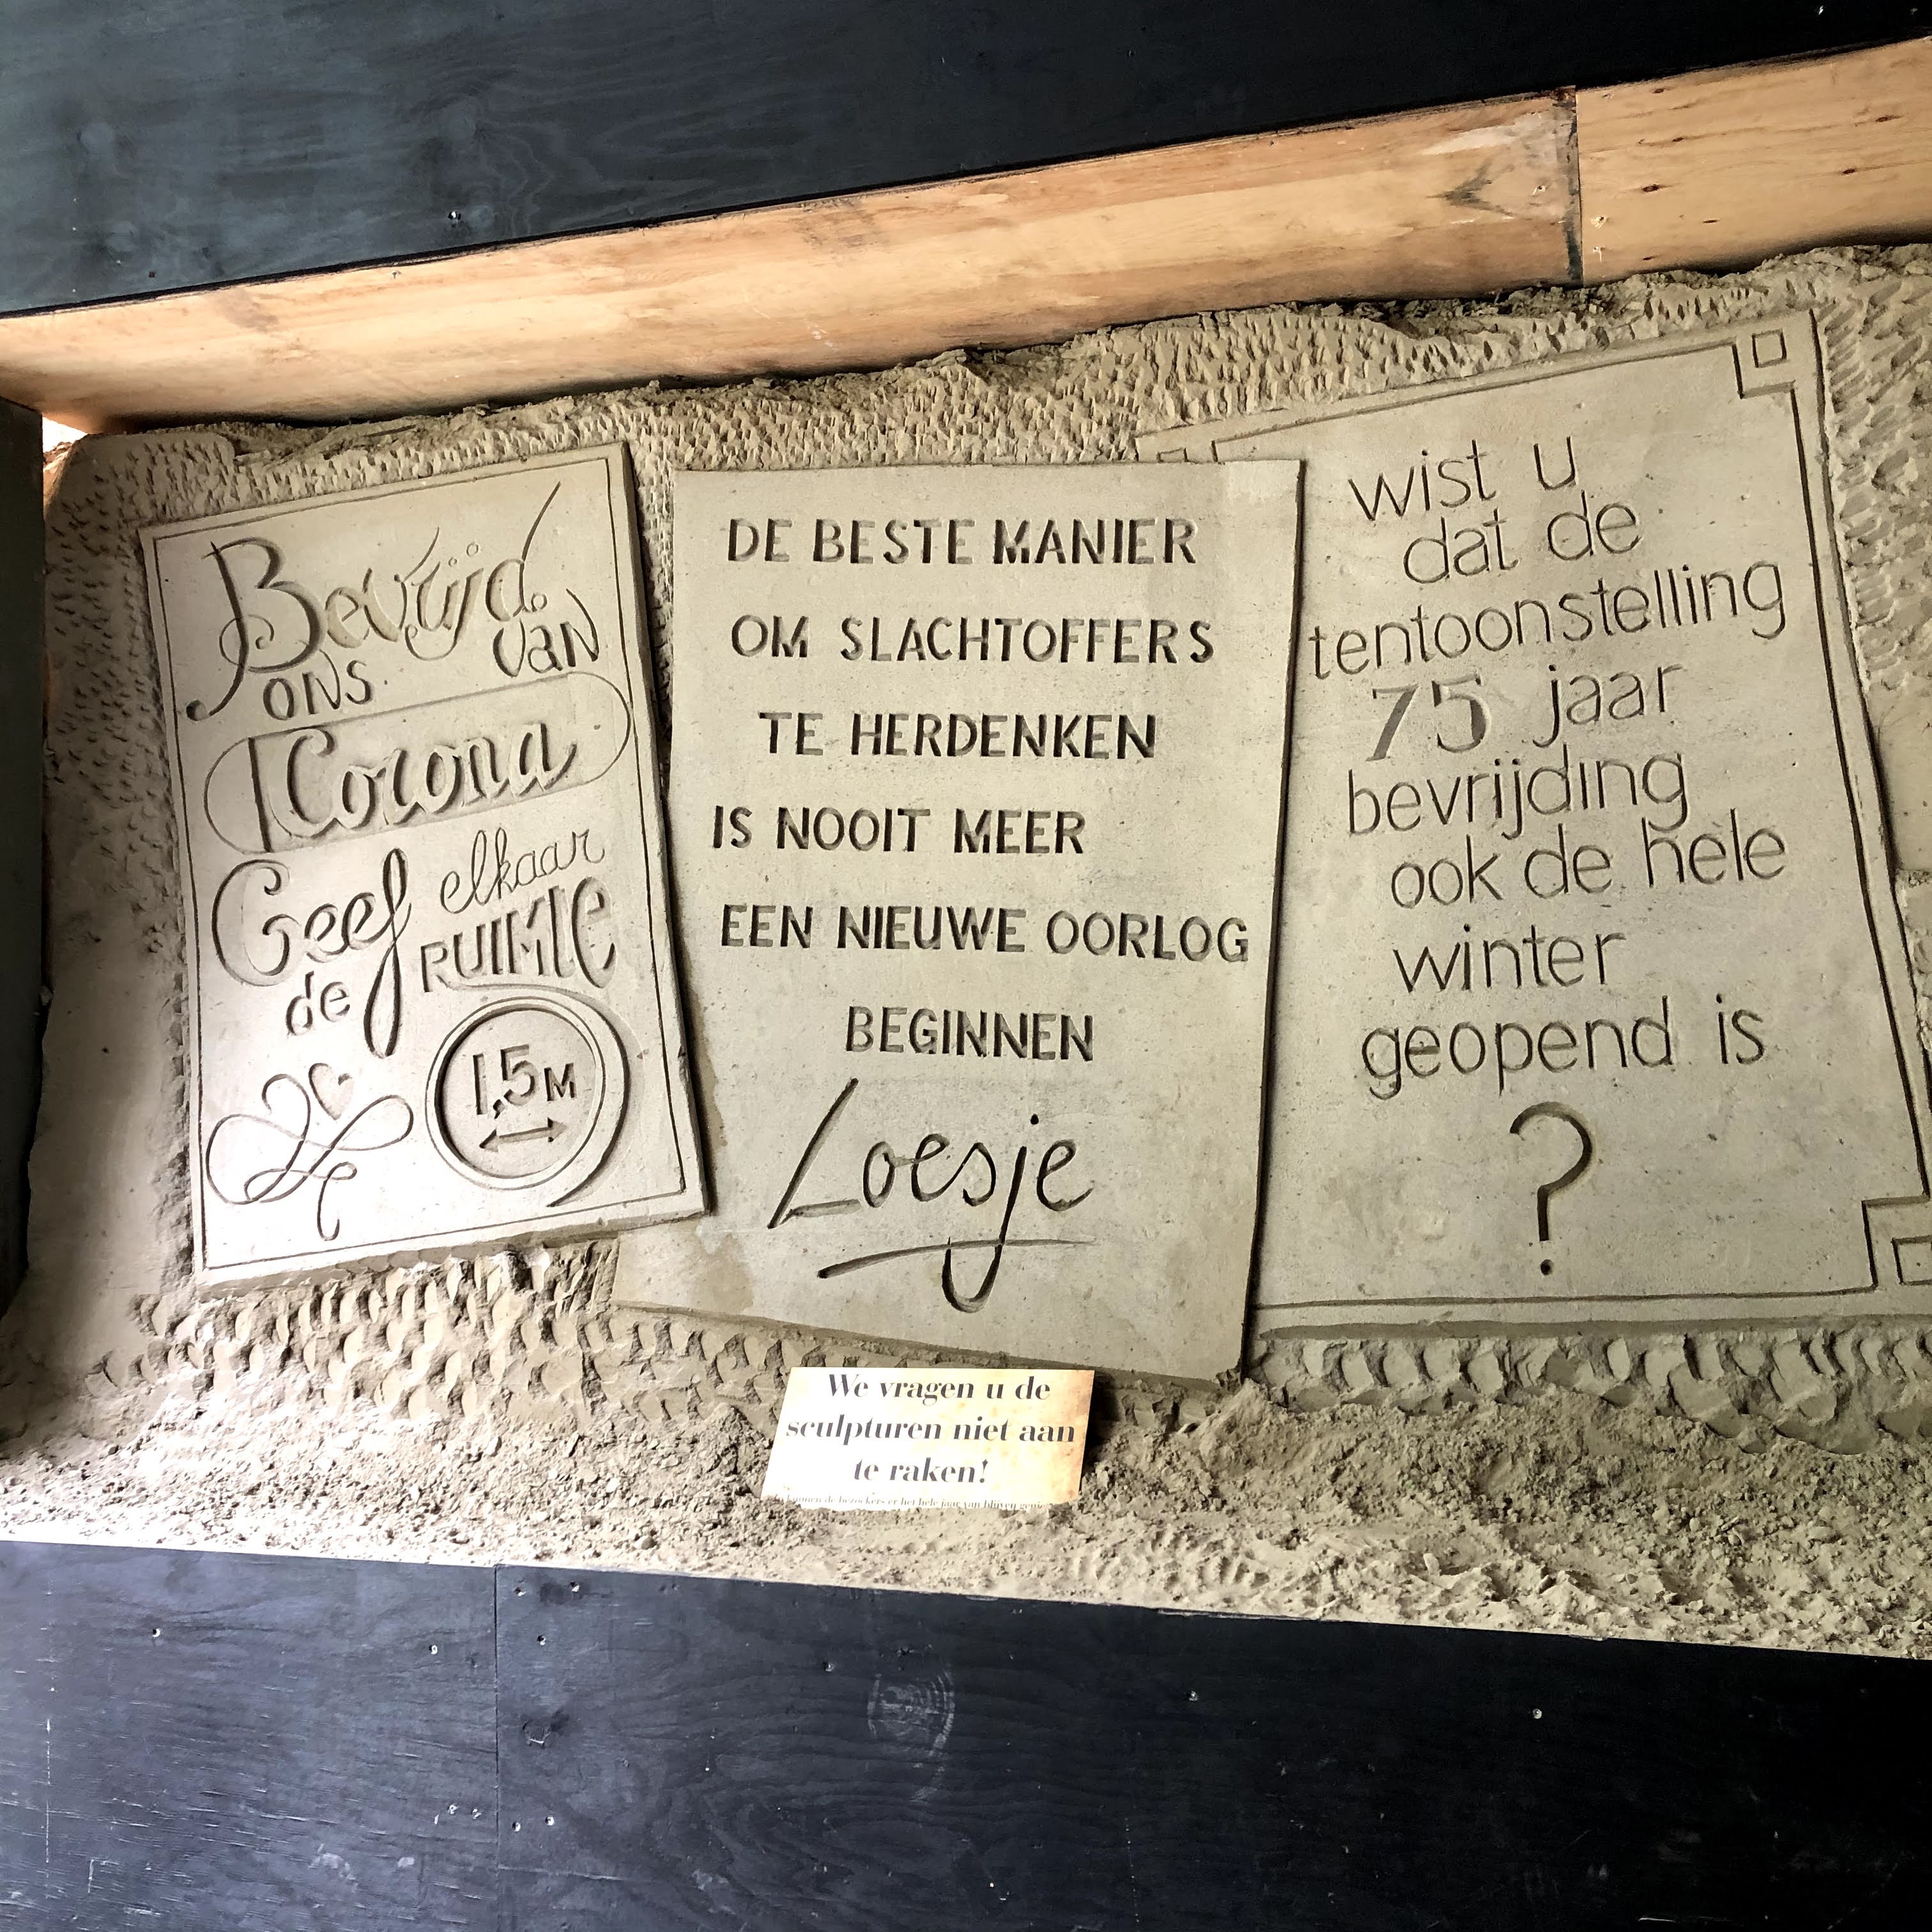 Bevrijd
ons van
Corona
Geef elkaar
de RUIMTE
1,5M
DE BESTE MANIER
OM SLACHTOFFERS
TE HERDENKEN
IS NOOIT MEER
EEN NIEUWE OORLOG
BEGINNEN
Loesje
wist u
dat de
tentoonstelling
75 jaar
bevrijding
ook de hele
winter
geopend is
?
We vragen u de
sculpturen niet aan
te raken!
de bezoekers er het hele jaar van blijven